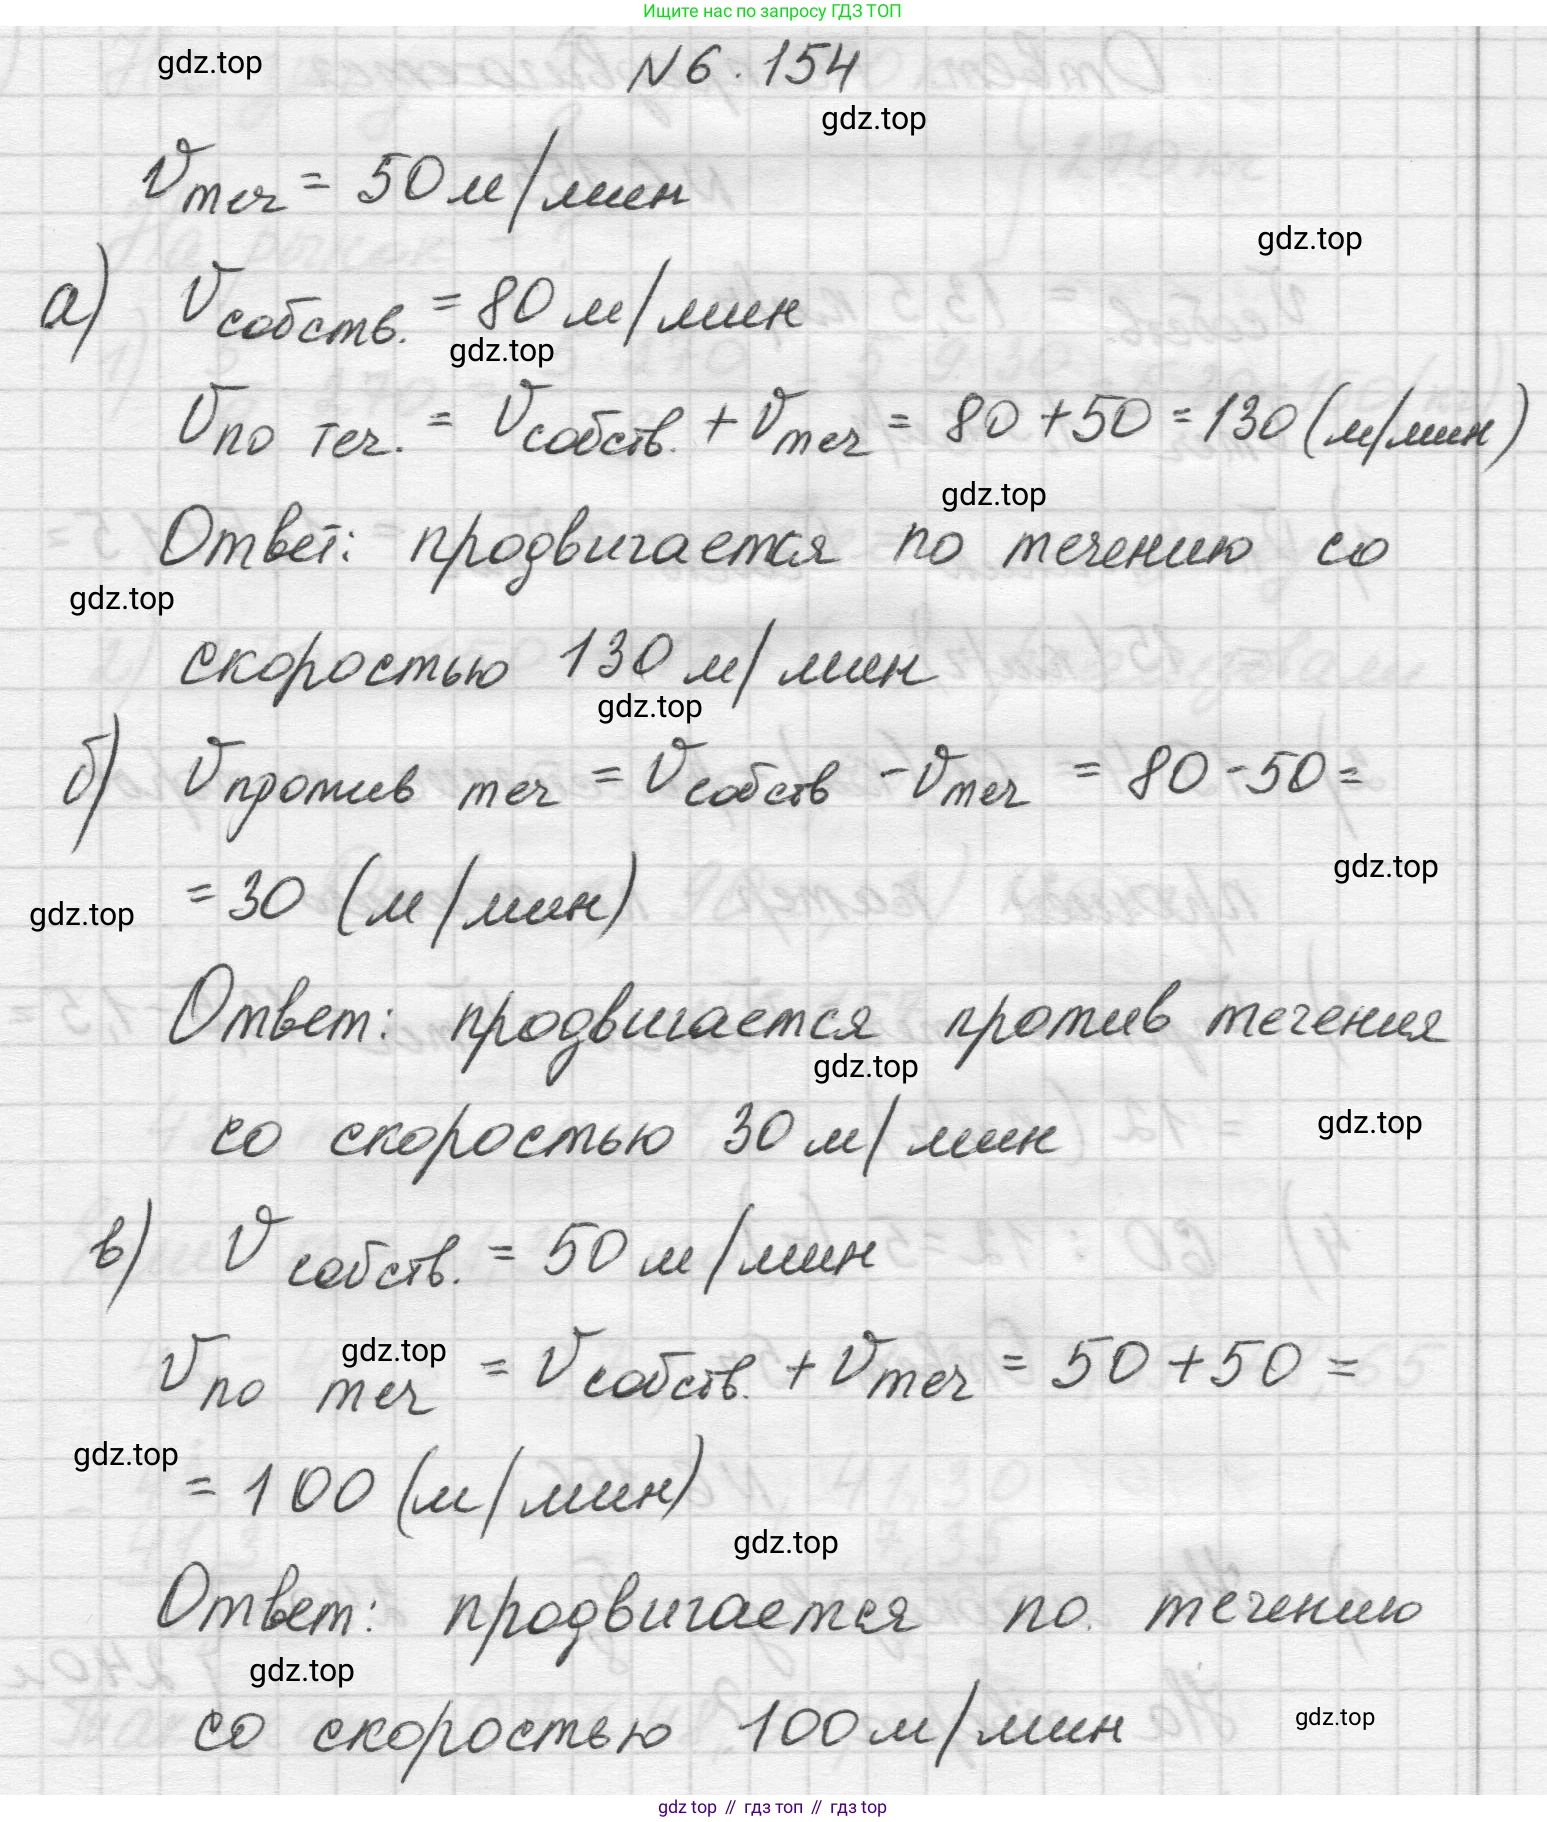 Ищите нас по запросу ГДЗ ТОП
gdz.top
N 6.154
gdz.top
vтеч = 50 м/мин
gdz.top
а) vсобств. = 80 м/мин
gdz.top
vпо теч. = vсобств. + vтеч = 80 + 50 = 130 (м/мин)
gdz.top
Ответ: продвигается по течению со
gdz.top
скоростью 130 м/мин
gdz.top
б) vпротив теч = vсобств - vтеч = 80 - 50 =
gdz.top
= 30 (м/мин)
gdz.top
Ответ: продвигается против течения
gdz.top
со скоростью 30 м/мин
gdz.top
в) vсобств. = 50 м/мин
gdz.top
vпо теч = vсобств. + vтеч = 50 + 50 =
gdz.top
= 100 (м/мин)
gdz.top
Ответ: продвигается по течению
gdz.top
со скоростью 100 м/мин
gdz.top
gdz top // гдз топ // gdz top